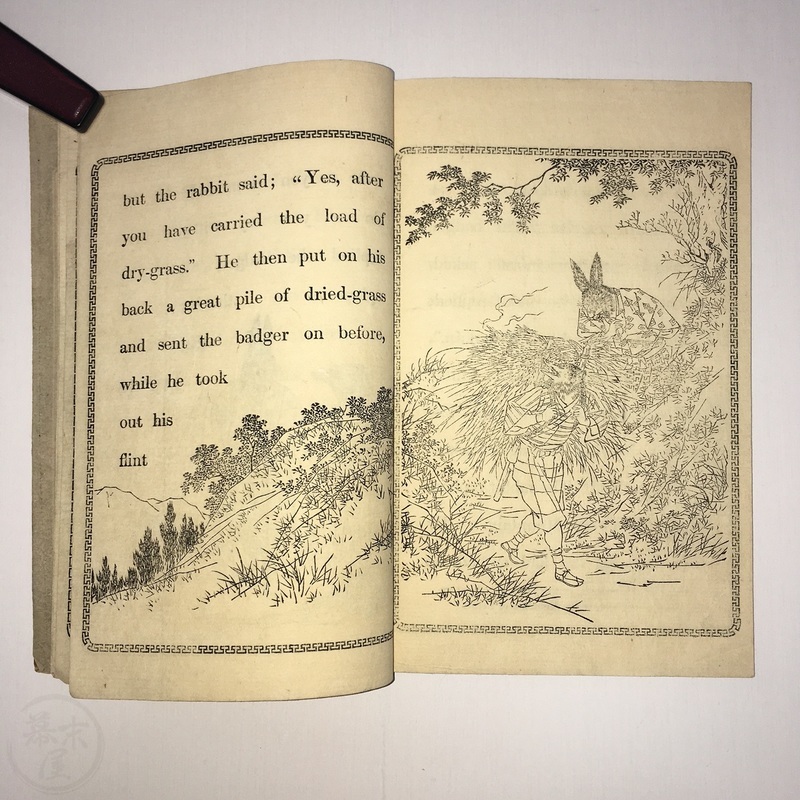 but the rabbit said; “Yes, after
you have carried the load of
dry-grass.” He then put on his
back a great pile of dried-grass
and sent the badger on before,
while he took
out his
flint
幕末屋